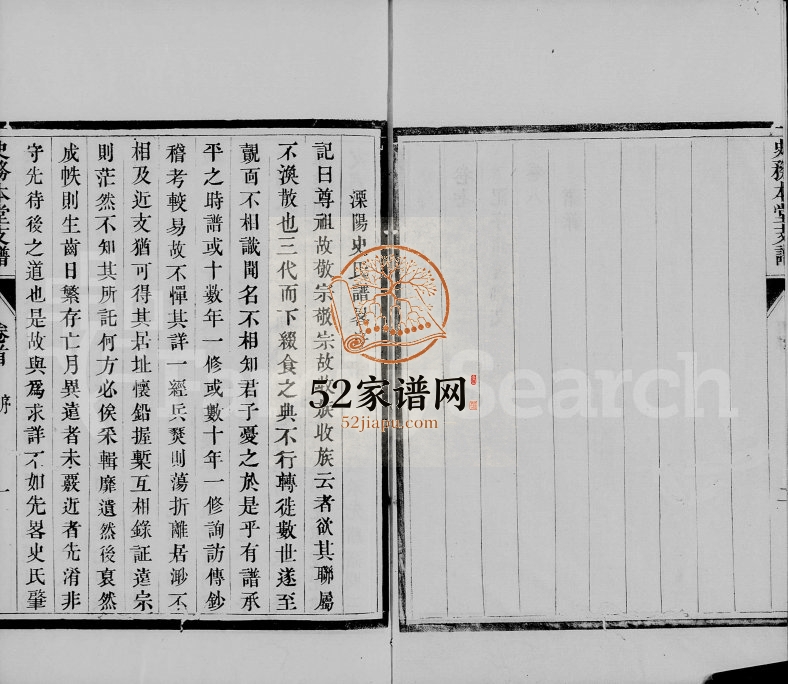 史務本堂支譜
溧陽史氏譜畧
記曰尊祖故敬宗敬宗故收族收族云者欲其聯屬
不渙散也三代而下綴食之典不行轉徙數世遂至
覿面不相識聞名不相知君子憂之於是乎有譜承
平之時譜或十數年一修或數十年一修詢訪傳鈔
稽考較易故不憚其詳一經兵燹則蕩折離居渺不
相及近支猶可得其居址懷鉛握槧互相錄証遠宗
則茫然不知其所託何方必俟釆輯靡遺然後裒然
成帙則生齒日繁存亡月異遠者未覈近者先淆非
守先待後之道也是故與爲求詳不如先畧史氏肇
史務本堂支譜
卷首
序
一
52家谱网
52jiapu.com
Search